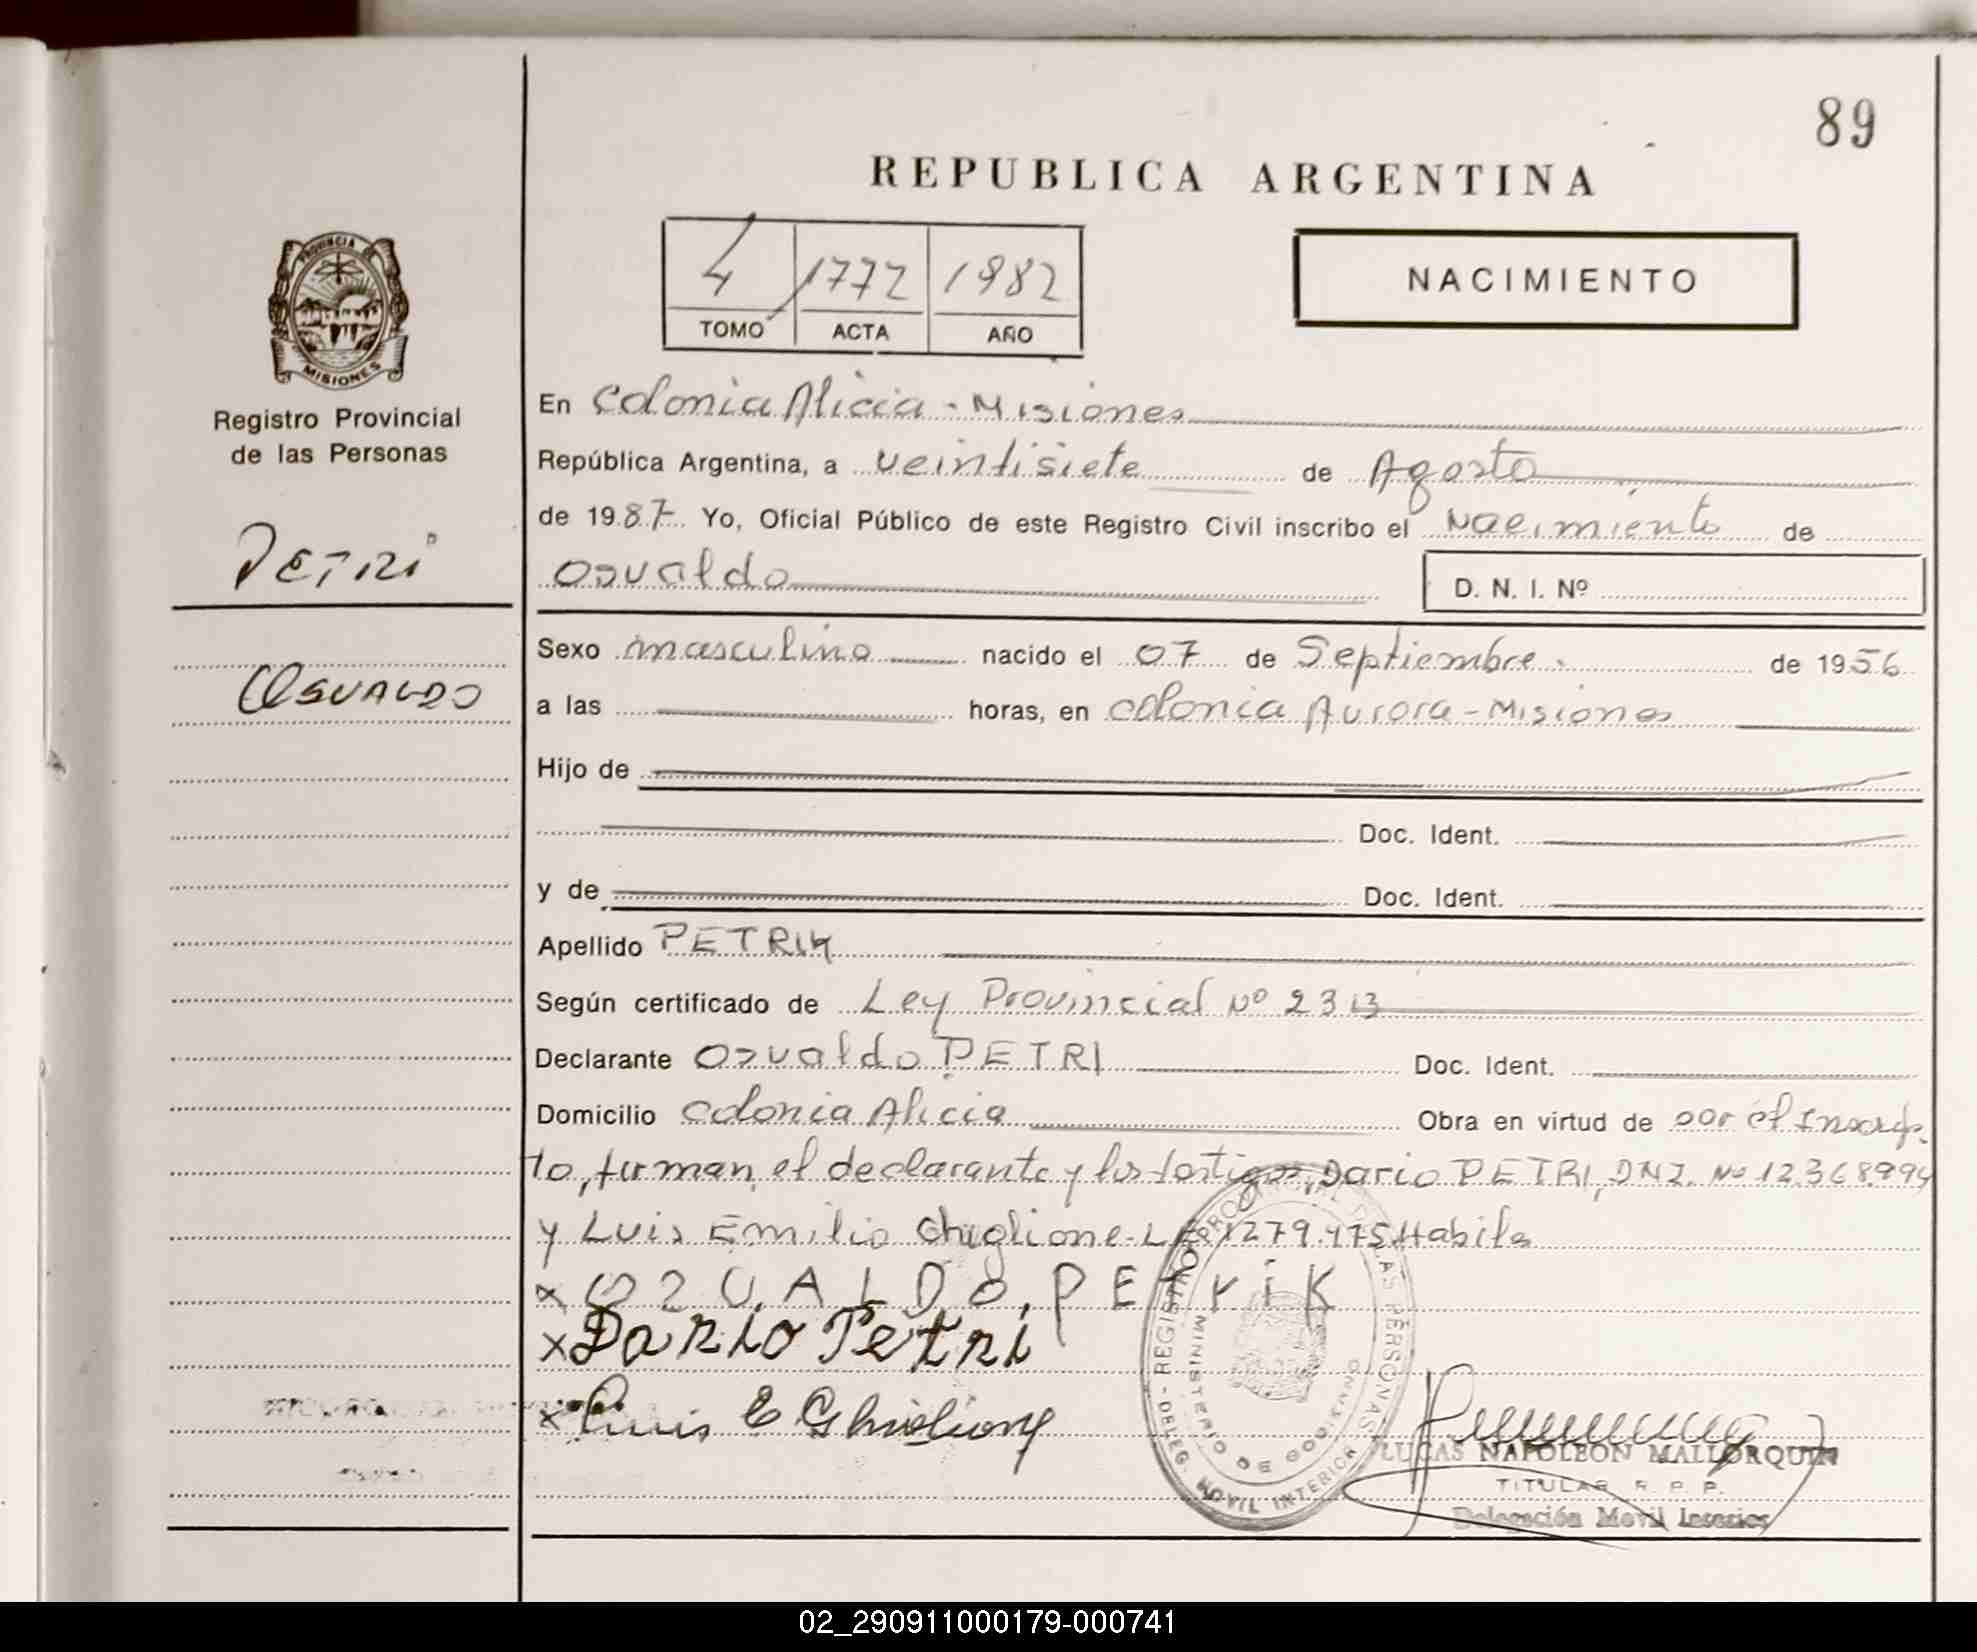 89
REPUBLICA ARGENTINA
4 1772 1982
TOMO ACTA AÑO
NACIMIENTO
PROVINCIA
MISIONES
Registro Provincial
de las Personas
PETRI
OSVALDO
En Colonia Alicia - Misiones
República Argentina, a veintisiete de Agosto
de 1987 Yo, Oficial Público de este Registro Civil inscribo el Nacimiento de
Osvaldo D. N. I. Nº
Sexo masculino nacido el 07 de Septiembre de 1956
a las horas, en Colonia Aurora - Misiones
Hijo de
Doc. Ident.
y de Doc. Ident.
Apellido PETRIK
Según certificado de Ley Provincial Nº 2313
Declarante Osvaldo PETRI Doc. Ident.
Domicilio Colonia Alicia Obra en virtud de por el Inscrip
to, firman el declarante y los testigos, Dario PETRI, DNI. Nº 12.368.994
y Luis Emilio Ghiglione - LE 1279.475 Habiles
x OSVALDO, PETriK
x Dario Petri
x Luis E Ghiglione
REGISTRO PROVINCIAL DE LAS PERSONAS - DELEG. MOVIL INTERIOR
MINISTERIO DE GOBIERNO
LUCAS NAPOLEON MALLORQUIN
TITULAR R. P. P.
Delegación Movil Interior
02_290911000179-000741